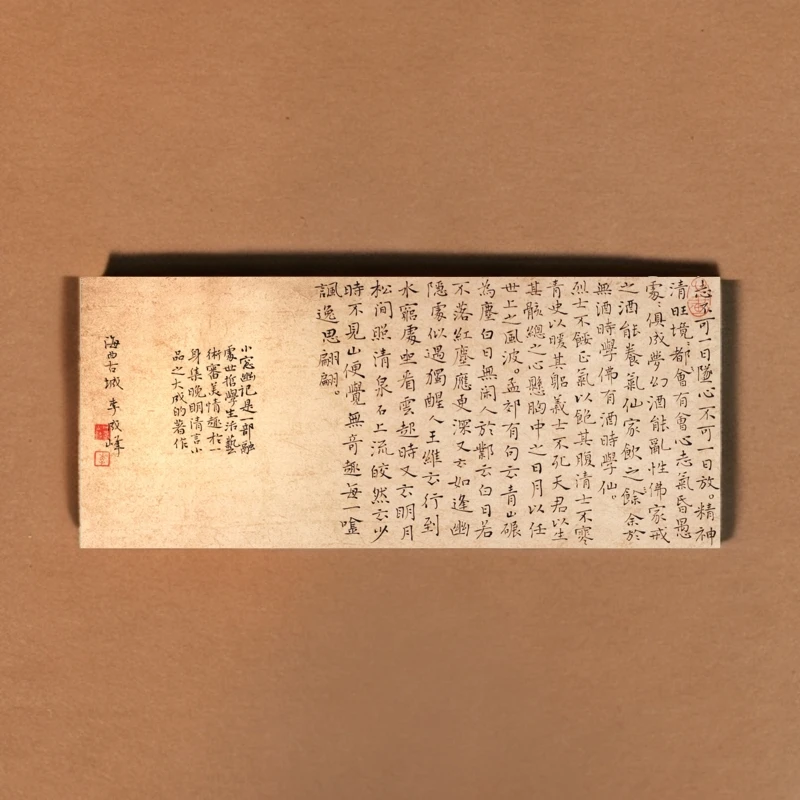 志不可一日隳心不可一日放。精神
清旺境都會有會心志氣昏愚
處俱成夢幻酒能亂性佛家戒
之酒能養氣仙家飲之餘余於
無酒時學佛有酒時學仙。
烈士不餒正氣以飽其腹清士不寒
青史以暖其躬義士不死天君以生
其骸總之心懸胸中之日月以任
世上之風波。孟郊有句云青山碾
為塵白日無閑人於鄴云白日若
不落紅塵應更深又云如逢幽
隱處似遇獨醒人王維云行到
水窮處坐看雲起時又云明月
松间照清泉石上流皎然云少
時不見山便覺無奇趣每一唫
諷逸思翩翩。
小窓幽记是一部融
處世哲學生活藝
術審美情趣於一
身集晚明清言小
品之大成的著作
海西古城 李成峰